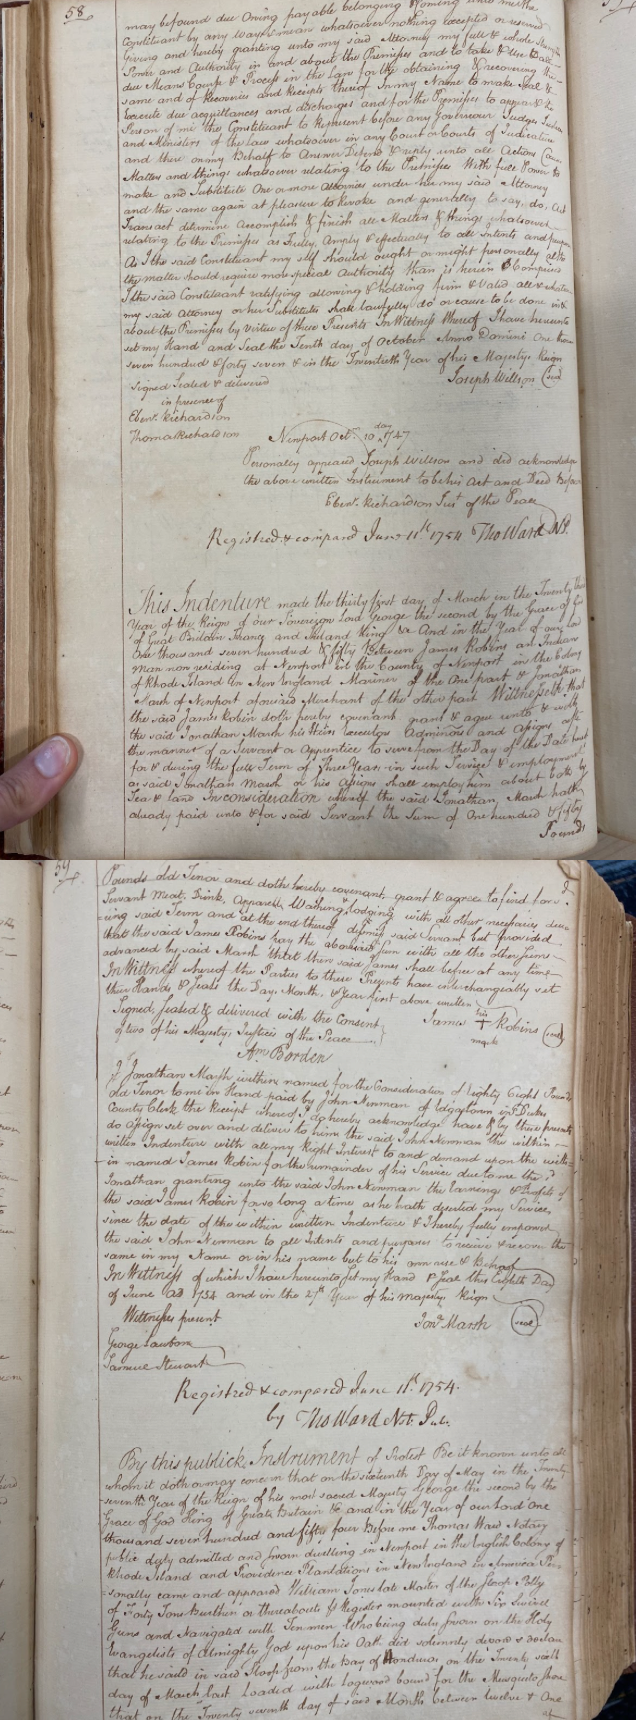 58.
may be found due Owing payable belonging & coming unto me the
Constituent by any ways & means whatsoever nothing excepted or reserved
Giving and hereby granting unto my said Attorney my full & whole Strength
Power and Authority in and about the Premisses and to take & Use all
due Means Course & Process in the Law for the obtaining & recovering the
same and of Recoveries and Receipts thereof In my Name to make Seal &
Execute due acquittances and discharges and for the Premisses to appear & the
Person of me the Constituent to Represent before any Governour Judge
and Ministers of the law whatsoever in any Court or Courts of Judicature
and there on my Behalf to Answer Defend & reply unto all Actions
Matters and things whatsoever relating to the Premisses With full Power to
make and Substitute One or more attornies under her my said Attorney
and the same again at pleasure to Revoke and generally to say, do, Act
Transact determine Accomplish & finish all Matters & things whatsoever
relating to the Premisses as Fully, Amply & effectually to all Intents and
As I the said Constituent my self should ought or might personally altho
the matter should require more special Authority than is herein Comprised
I the said Constituent ratifying allowing & holding firm & Valid all &
my said Attorney or her Substitutes shall lawfully do or cause to be done in &
about the Premises by Virtue of these Presents In Wittness Whereof I have hereunto
set my Hand and Seal the Tenth day of October Anno Domini One thou
seven hundred & forty seven & in the Twentieth Year of his Majestys Reign
Joseph Willson (seal)
Signed Sealed & delivered
in presence of
Ebenr. Richardson
Thomas Richardson
Newport Octr. 10 day 1747
Personally appeared Joseph Willson and did acknowledge
the above written Instrument to be his Act and Deed Before
Ebenr. Richardson Just of the Peace
Registred & compared June 11th 1754 Tho Ward N.P.
This Indenture made the thirty first day of March in the Twenty third
Year of the Reign of our Sovereign Lord George the second by the Grace of God
of Great Brittain France and Ireland King &c And in the Year of our Lord
One thousand seven hundred & fifty Between James Robins an Indian
Man now residing at Newport in the County of Newport in the Colony
of Rhode Island in New England Mariner of the One part & Jonathan
Marsh of Newport aforesaid Merchant of the other part Wittnesseth that
the said James Robin doth hereby covenant grant & agree unto & with
the said Jonathan Marsh his Heirs Executors Adminors and Assigns after
the manner of a Servant or Apprentice to serve from the Day of the Date hereof
for & during the full Term of Three Years in such Service & employment
as said Jonathan Marsh or his Assigns shall employ him about both by
Sea & land In consideration whereof the said Jonathan Marsh hath
already paid unto & for said Servant the Sum of One hundred & fifty
Pounds
59
Pounds old Tenor and doth hereby covenant, grant & agree to find for sd.
Servant Meat, Drink, Apparel Washing & lodging with all other necessaries dur=
=ing said Term and at the end thereof dismiss said Servant but provided
that the said James Robins pay the aforesaid Sum with all the other Sums
advanced by said Marsh that then said James shall be free at any time
In Witness whereof the Parties to these Presents have interchangeably set
their Hands & Seals the Day, Month, & Year first above written
Signed, sealed & delivered with the Consent
of two of his Majestys Justices of the Peace
James his + mark Robins (seal)
Am Borden
I Jonathan Marsh within named for the Consideration of Eighty Eight Pounds
old Tenor to me in Hand paid by John Newman of Edgartown in Dukes
County Clerk the Receipt whereof I do hereby acknowledge have & by these presents
do Assign set over and deliver to him the said John Newman the within
written Indenture with all my Right Interest to and demand upon the with=
in named James Robin for the remainder of his Service due to me the sd.
Jonathan granting unto the said John Newman the Earnings & Profits of
the said James Robin for so long a time as he hath deserted my Service
since the date of the within written Indenture & I hereby fully empower
the said John Newman to all Intents and purposes to receive & recover the
same in my Name or in his name but to his own use & Behoof
In Wittness of which I have hereunto set my Hand & Seal this Day
of June AD 1754 and in the 27th Year of his majestys Reign
Wittnesses present
Jona Marsh (seal)
George Lawton
Samuel Stewart
Registred & compared June 11th 1754.
by Tho Ward Not. Pub.
By this publick Instrument of Protest Be it known unto all
whom it doth or may concern that on the sixteenth Day of May in the Twenty
seventh Year of the Reign of his most sacred Majesty George the second by the
Grace of God King of Great Britain &c and in the Year of our Lord One
thousand seven hundred and fifty four Before me Thomas Ward Notary
public duly admitted and sworn dwelling in Newport in the English Colony of
Rhode Island and Providence Plantations in New England in America Per=
sonally came and appeared William Jones late Master of the Sloop Polly
of Forty Tons Burthen or thereabouts & Register mounted with Six Swivel
Guns and Navigated with Ten men Who being duly sworn on the Holy
Evangelists of Almighty God upon his Oath did solemnly depose & declare
that he sail'd in said Sloop from the Bay of Honduras on the Twenty sixth
day of March last Loaded with Logwood bound for the Musqueto Shore
that on the Twenty seventh day of said Month between twelve & One